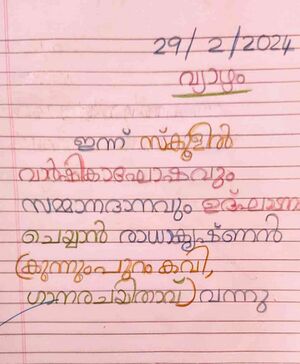 29/2/2024
വ്യാഴം
ഇന്ന് സ്കൂളിൽ
വാർഷികാഘോഷവും
സമ്മാനദാനവും ഉദ്ഘാടന
ചെയ്യാൻ രാധാകൃഷ്ണൻ
(കുന്നുംപുറം കവി,
ഗാനരചയിതാവ്) വന്നു